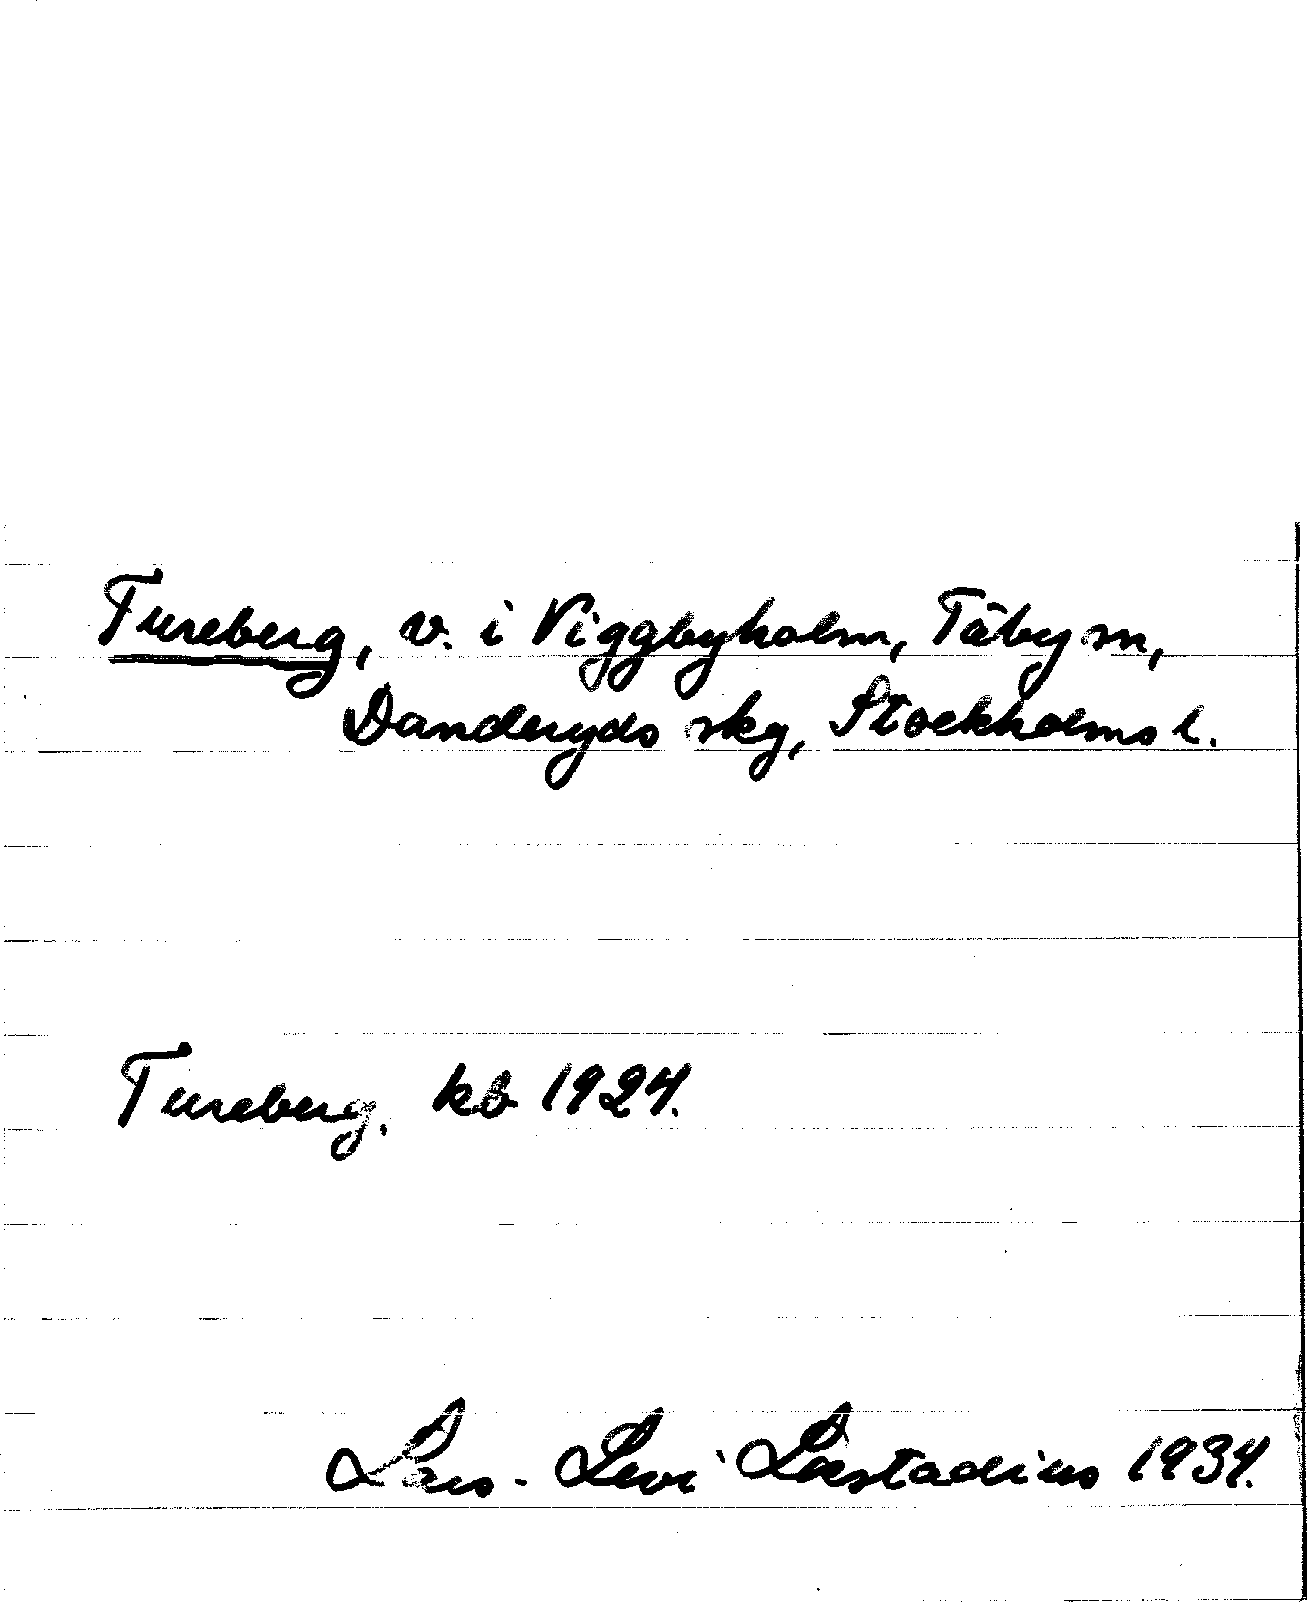 Tureberg, v. i Viggbyholm, Täby sn,
Danderyds skg, Stockholms l.
Tureberg. kb 1924.
Lars-Levi Læstadius 1934.